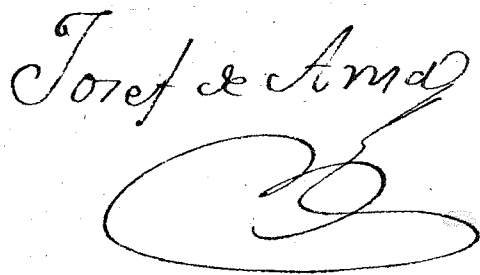 Josef de Amd